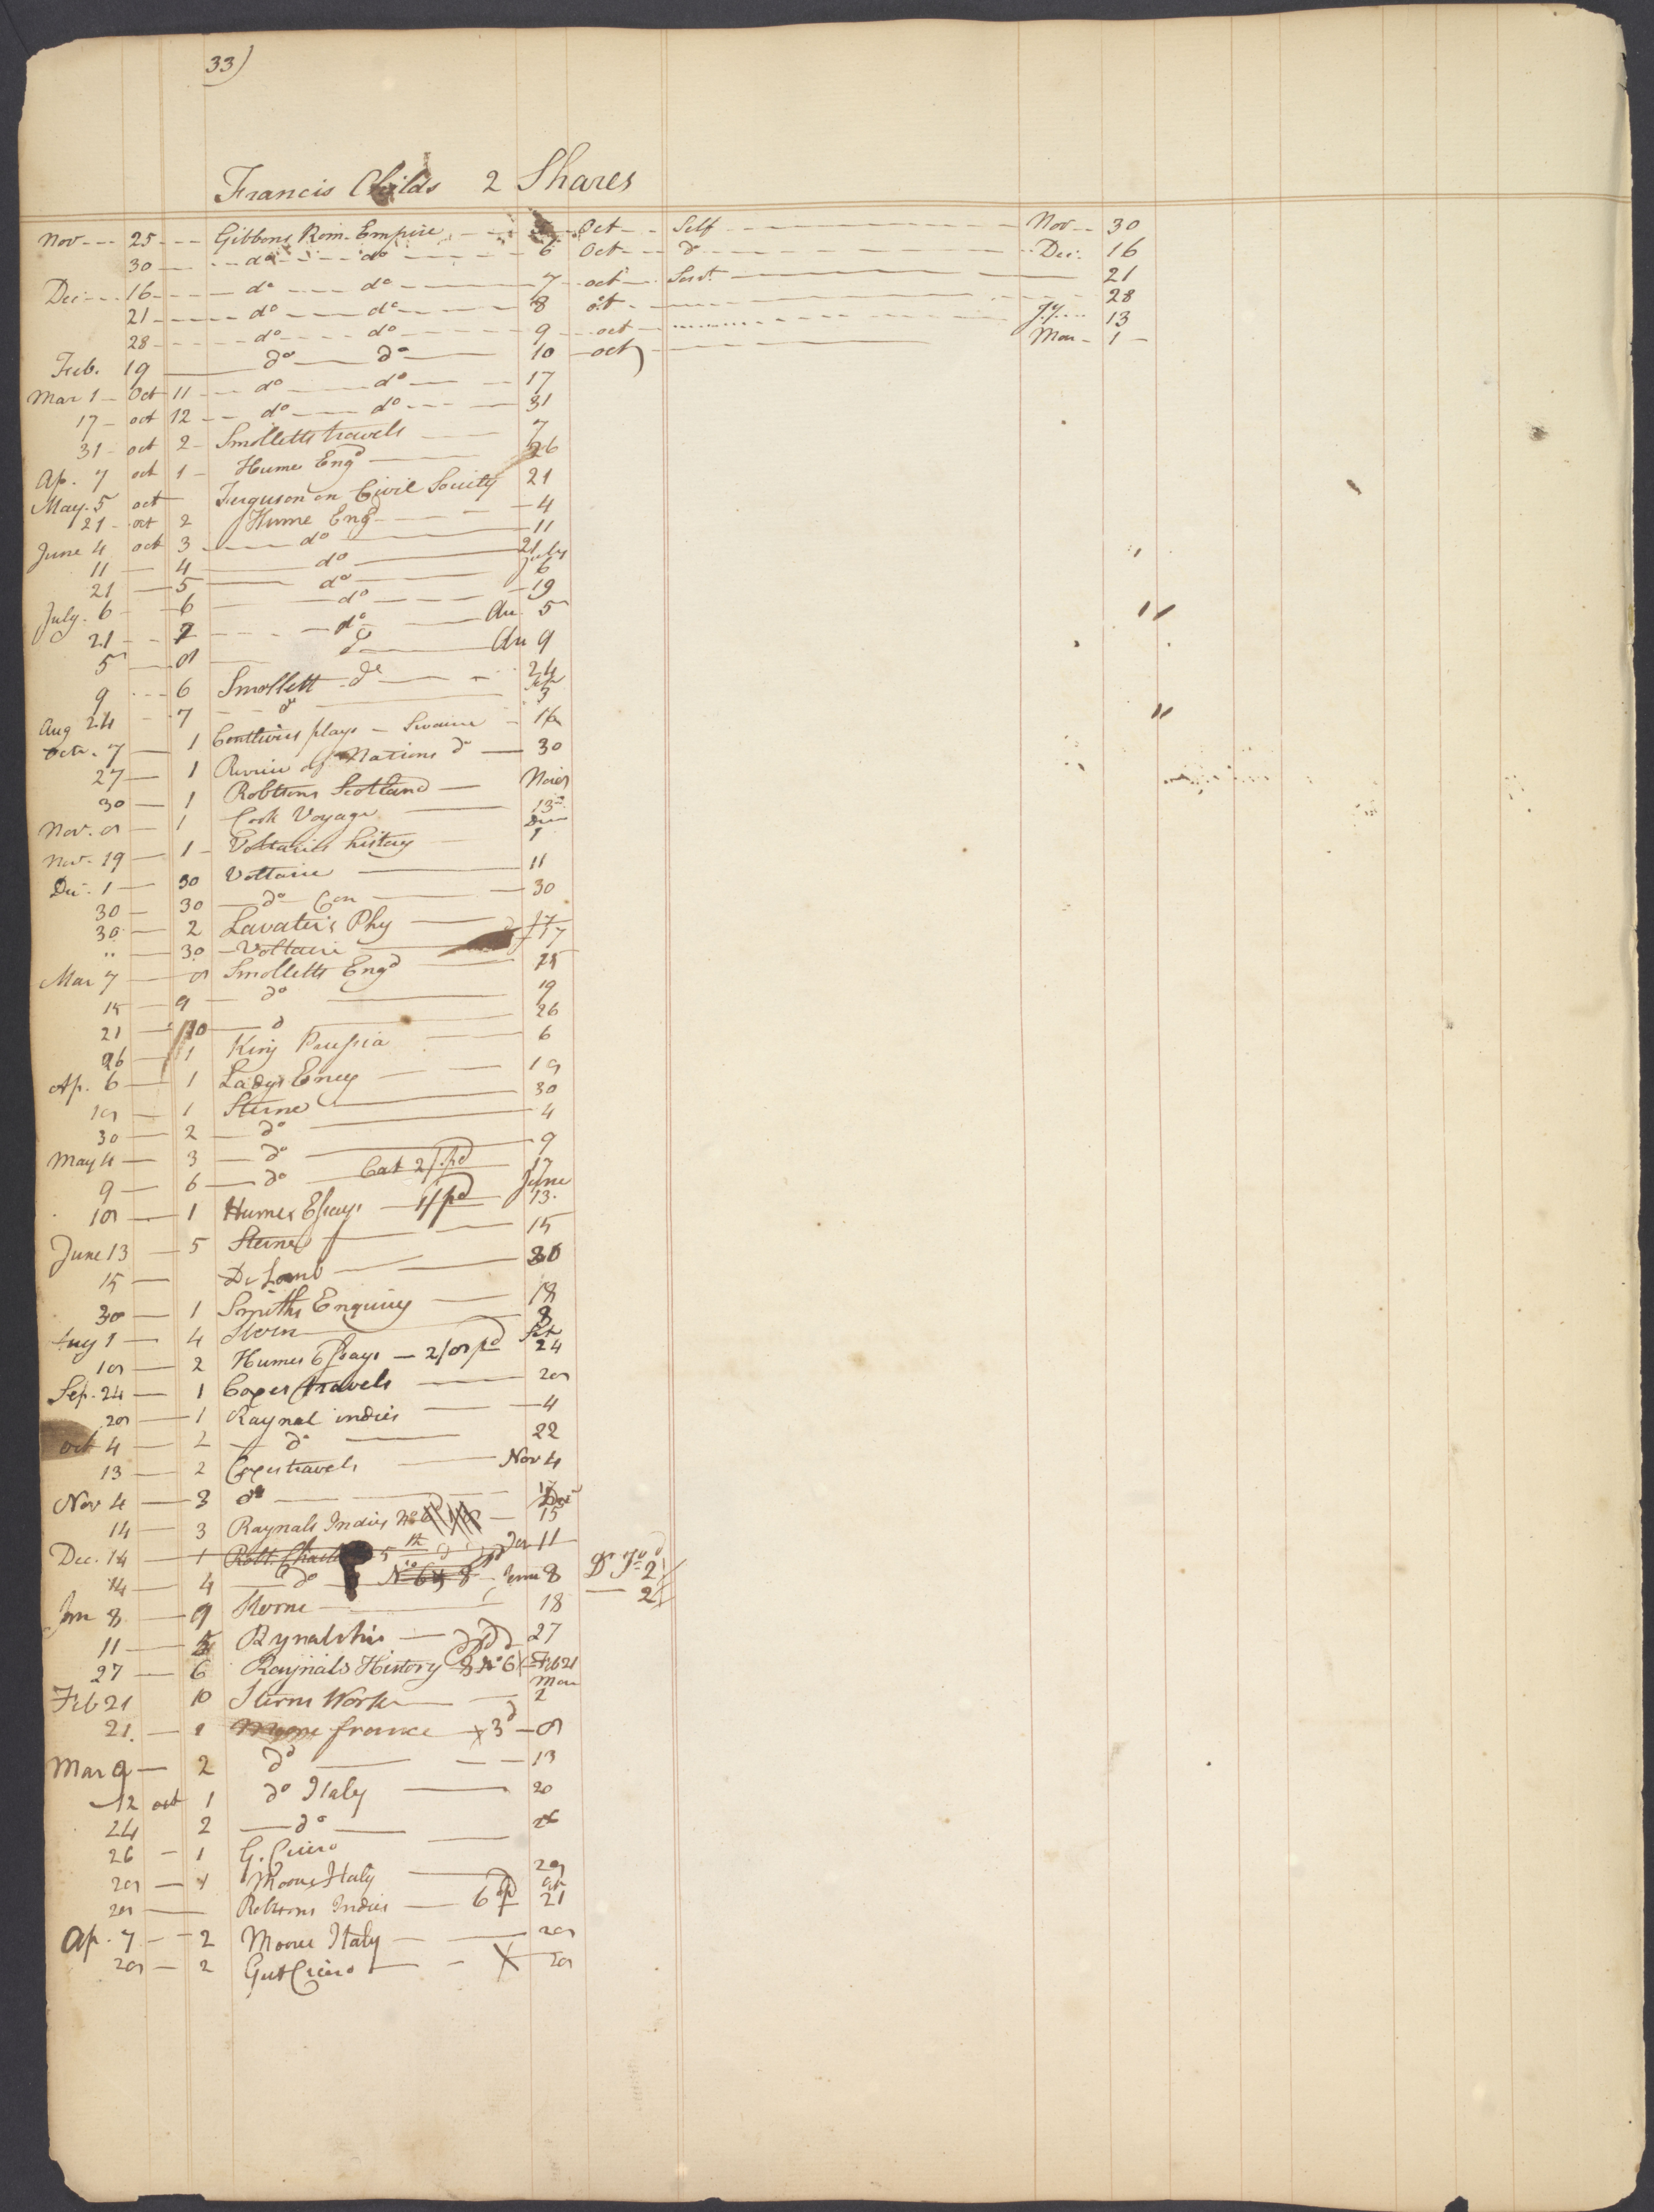 33)
Francis Childs 2 Shares
Nov 25 Gibbons Rom. Empire Oct Self Nov 30
30 do do 6 Oct do Dec. 16
Dec 16 do do 7 oct Servt 21
21 do do 8 oct 28
28 do do 9 oct Jy 13
Feb. 19 do do 10 oct Mar 1
Mar 1 Oct 11 do do 17
17 oct 12 do do 31
31 oct 2 Smolletts travels 7
Ap. 7 oct 1 Hume Engd 26
May. 5 oct Ferguson on Civil Society 21
21 oct 2 Hume Engd 4
June 4 oct 3 do 11
11 4 do 21
21 5 do July 6
July. 6 6 do 19
21 7 do Au 5
5 8 do Au 9
9 6 Smollett do 24
Aug 24 7 do 5
Octr. 7 1 Centlivres plays Swaine 16
27 1 Review of Nations do 30
30 1 Robtsons Scotland Nov 8
Nov. 8 1 Cook Voyage 13
Nov. 19 1 Voltaires history Dec 1
Dec. 1 30 Voltaire 11
30 30 do Con 30
30 2 Lavater's Phy 7
" 30 Voltaire 7
Mar 7 8 Smolletts Engd 15
15 9 do 19
21 10 do 26
26 1 King Prussia 6
Ap. 6 1 Ladys Ency 18
18 1 Sterne 30
30 2 do 4
May 4 3 do 9
9 6 do Cat 2/ pd 17
18 1 Humes Essays 1/ pd June 13.
June 13 5 Sterne 15
15 De Lomb 30
30 1 Smiths Enquiry 18
Aug 1 4 Stern 8
18 2 Humes Essays 2/8 pd Set 24
Sep. 24 1 Coxes travels 28
28 1 Raynal indies 4
oct 4 2 do 22
13 2 Coxes travels Nov 4
Nov 4 3 do
14 3 Raynals Indies Dec 15
Dec. 14 1 Robt. 5 11
14 4 do No 6 8 Janu 8 2/
Jan 8 9 Sterne 18 2/
11 5 Rynalshis 27
27 6 Raynals History Feb 21
Feb 21 10 Sterns Works Mar 2
21. 1 Moore france 3d 8
Mar 9 2 do 13
12 oct 1 do Italy 20
24 2 do 26
26 1 G. Cicero
28 1 Moores Italy 28
28 Robtsons Indies 6 pd ap 21
Ap. 7 2 Moores Italy 28
28 2 Gut Cicero X 28